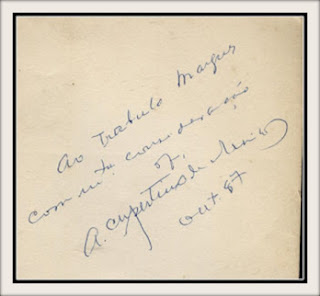 Ao Trabulo Marques
com mta. consideração
of.
A. Cupertino de Miranda
Out. 87